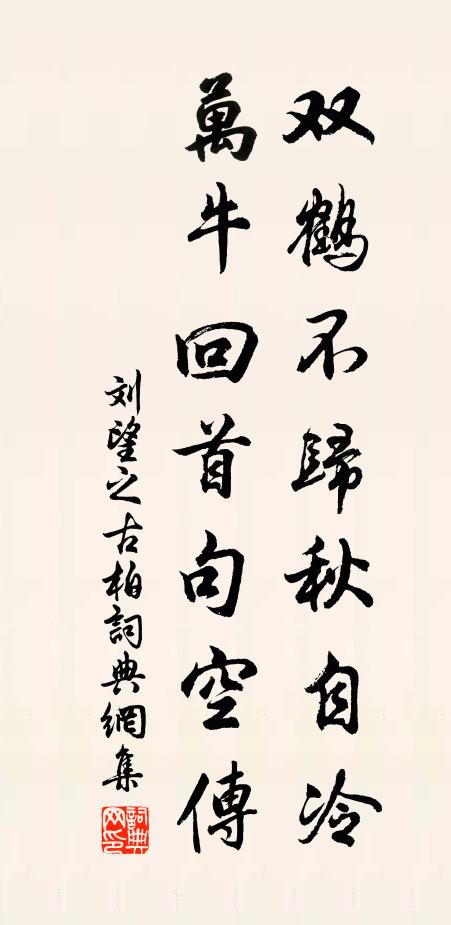 双鹤不歸秋自冷
萬牛回首句空傳
刘望之古柏詞典網集
詞典网印